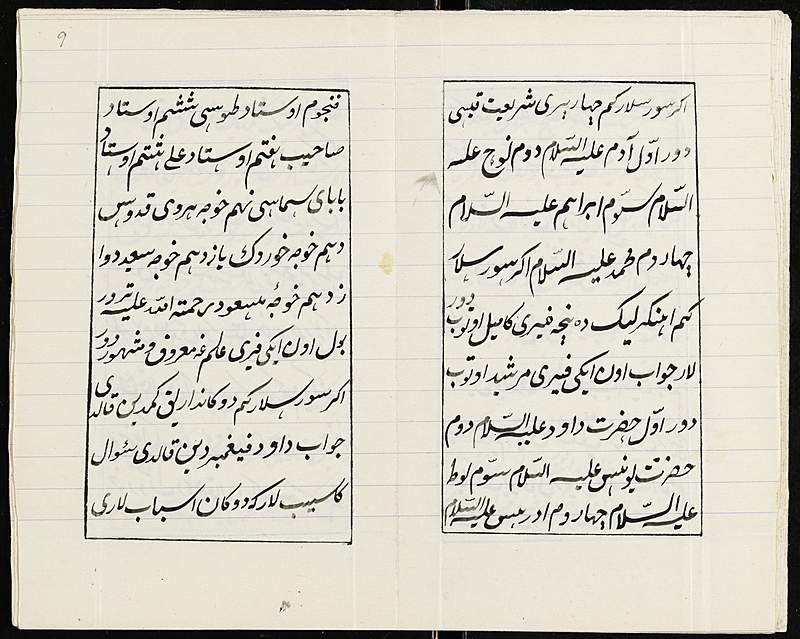 اکر سورسلار کم چهار پیری شریعت قیسی
دور اوّل آدم علیه السّلام دوم نوح علیه
السّلام سوّم ابراهیم علیه السّلام
چهاروم محمد علیه السّلام اکر سورسلار
کیم اهنکرلیک ده نیچه فیری کامیل اوتوب دور
لار جواب اون ایکی فیری مرشید اوتوب
دور اوّل حضرت داود علیه السّلام دوم
حضرت یونس علیه السّلام سوّم لوط
علیه السّلام چهاروم ادریس علیه السّلام
فنجوم اوستاد طوسی ششم اوستاد
صاحیب هفتم اوستاد علی هشتم اوستاد
بابای سماسی نهم خوجه هروی قدوس
دهم خوجه خوردک یازدهم خوجه سعید دوا
زدهم خوجهٔ مسعود رحمته الله علیه تورور
بول اون ایکی فیری علم غه معروف و مشهور دور
اکر سورسلار کم دوکاندارلیق کمدین قالدی
جواب داود فیغمبردین قالدی سئوال
کاسیب لار که دوکان اسباب لاری
9